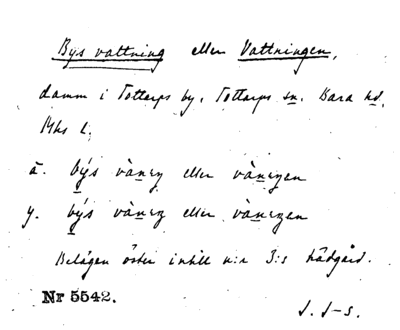 Bys vattning eller Vattningen,
damm i Tottarps by, Tottarps sn. Bara hd,
Mhs L.
ä. býs vànıŋ eller vànıŋen
y. býs vànıŋ eller vànıŋen
Belägen öster intill n:r 3:s trädgård.
Nr 5542.
J. J-s.